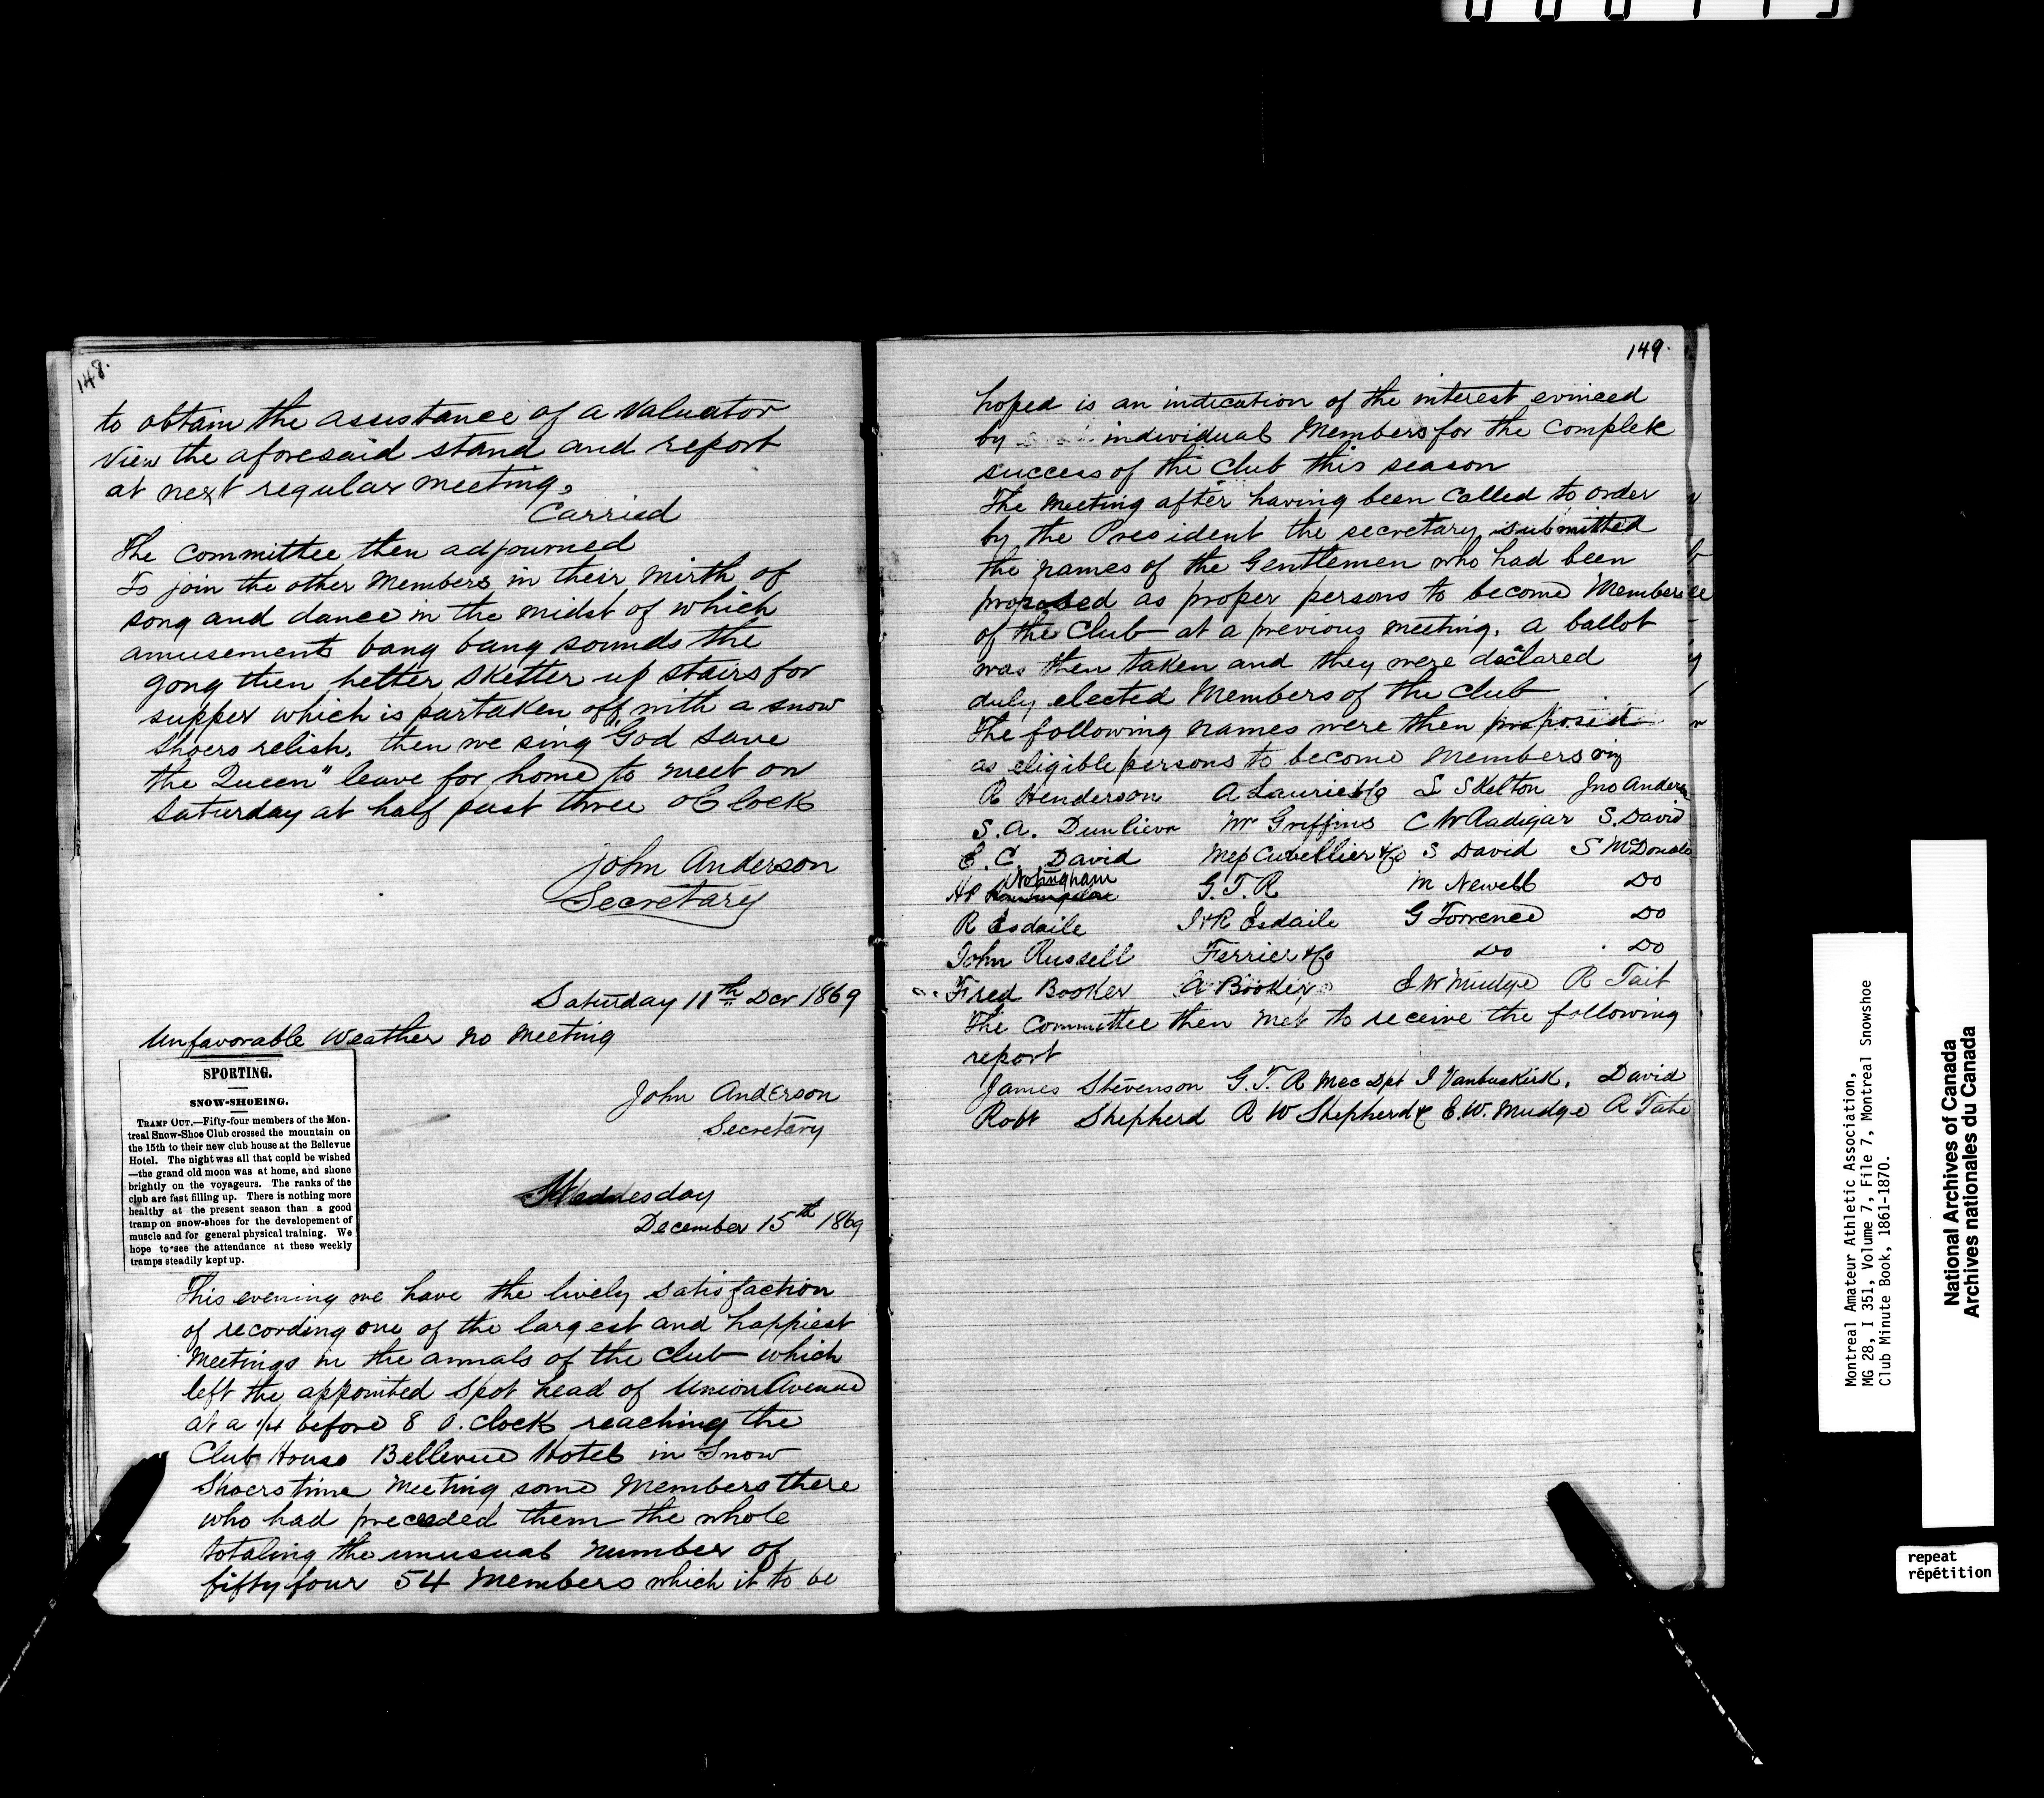 148.
to obtain the assistance of a Valuator
View the aforesaid stand and report
at next regular meeting,
Carried
The Committee then adjourned
To join the other Members in their mirth of
song and dance in the midst of which
amusements bang bang sounds the
gong then helter sketter up stairs for
supper which is partaken off with a snow
shoers relish, then we sing "God save
the Queen" leave for home to meet on
Saturday at half past three oClock
John Anderson
Secretary
Saturday 11th Dcr 1869
Unfavorable Weather no Meeting
SPORTING.
SNOW-SHOEING.
TRAMP OUT.—Fifty-four members of the Mon-
treal Snow-Shoe Club crossed the mountain on
the 15th to their new club house at the Bellevue
Hotel. The night was all that could be wished
—the grand old moon was at home, and shone
brightly on the voyageurs. The ranks of the
club are fast filling up. There is nothing more
healthy at the present season than a good
tramp on snow-shoes for the developement of
muscle and for general physical training. We
hope to see the attendance at these weekly
tramps steadily kept up.
John Anderson
Secretary
Wednesday
December 15th 1869
This evening we have the lively satisfaction
of recording one of the largest and happiest
Meetings in the annals of the Club which
left the appointed spot head of Union Avenue
at a 1/4 before 8 O.Clock reaching the
Club House Bellevue Hotel in Snow
Shoers time Meeting some Members there
who had preceeded them the whole
totaling the unusual number of
fifty four 54 Members which it to be
149.
hoped is an indication of the interest evinced
by individual Members for the Complete
success of the Club this season
The Meeting after having been Called to order
by the President the secretary submitted
the names of the Gentlemen who had been
proposed as proper persons to become Members
of the Club at a previous meeting, a ballot
was then taken and they were declared
duly elected Members of the Club
The following names were then proposed
as eligible persons to become Members viz
R Henderson A Laurie & Co L Skelton Jno Anderson
S. A. Dunlieor Wm Griffins C W Radigar S. David
E. C. David Cuvellier & Co S David S McDonald
H Notingham G. T. R M Newell Do
R Esdaile J & R Esdaile G Torrence Do
John Russell Ferrier & Co Do Do
Fred Booker A Booker E W Mudge R Tait
The Committee then Met to receive the following
report
James Stevenson G. T. R Mec Dpt J Vanbuskirk, David
Robt Shepherd R W Shepherd & E. W. Mudge R Tate
Montreal Amateur Athletic Association,
MG 28, I 351, Volume 7, File 7, Montreal Snowshoe
Club Minute Book, 1861-1870.
National Archives of Canada
Archives nationales du Canada
repeat
répétition